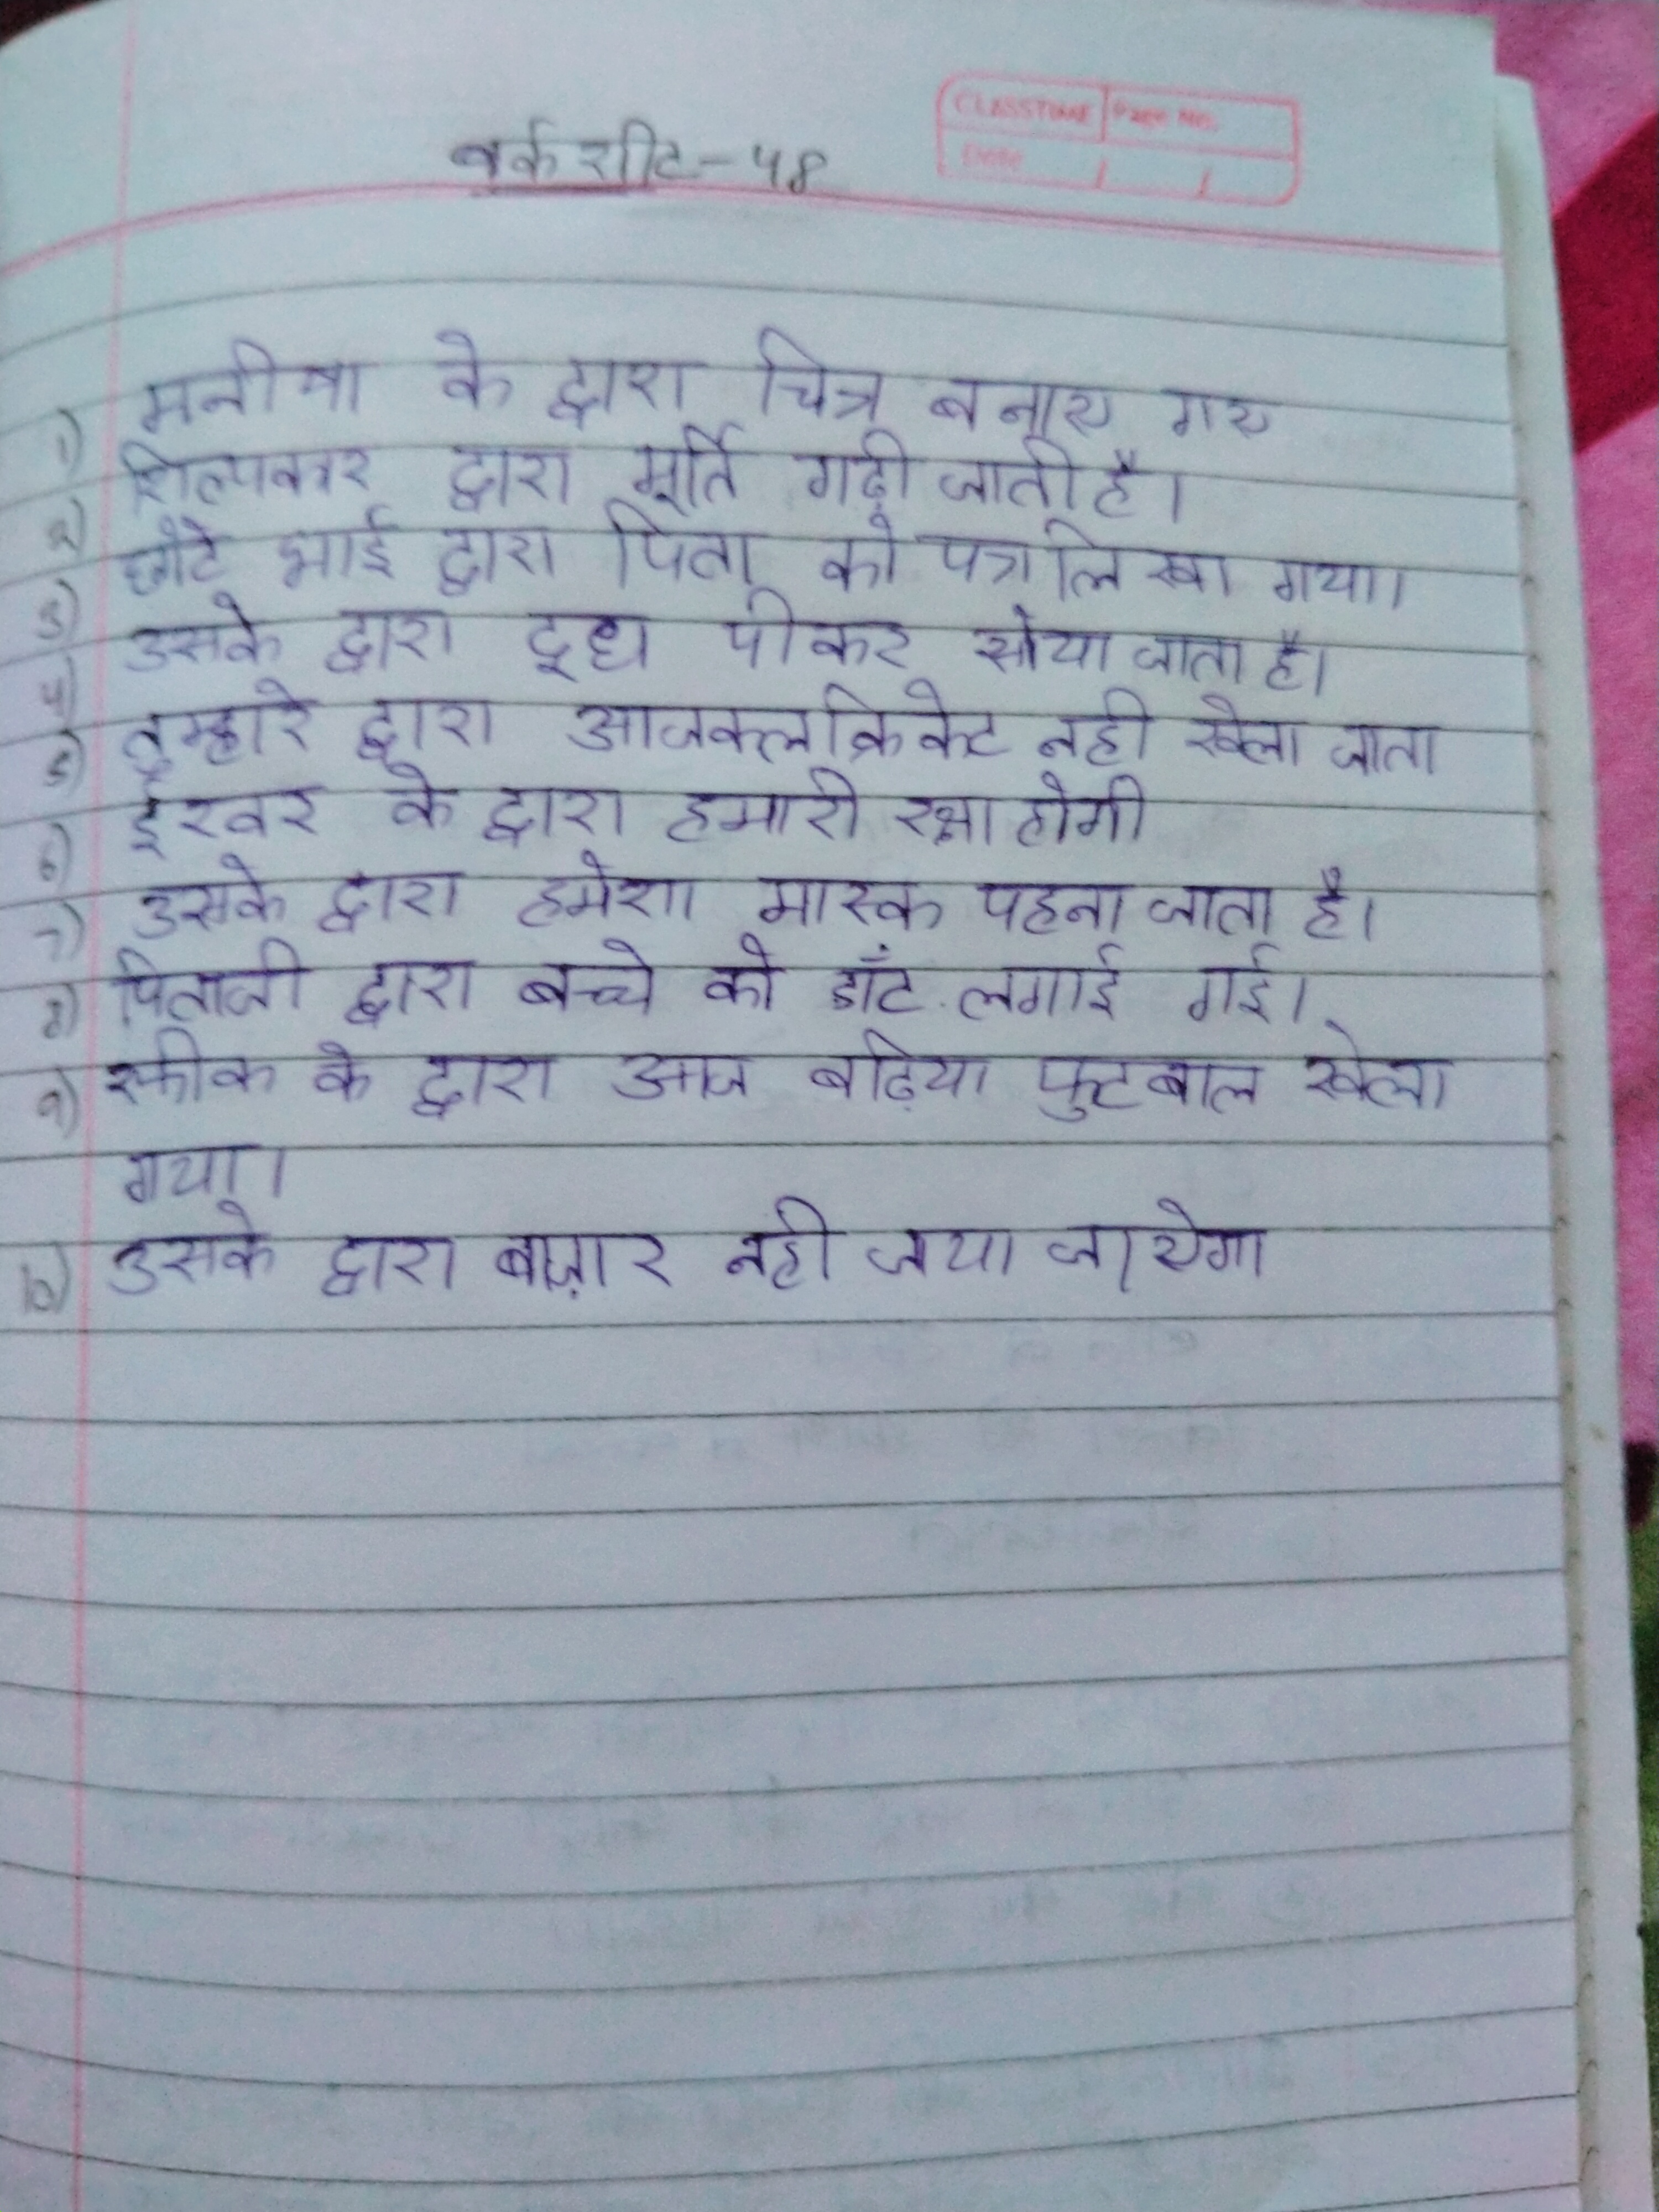 वर्कशीट - 48
CLASSTIME Page No.
Date / /
1) मनीषा के द्वारा चित्र बनाए गए
2) शिल्पकार द्वारा मूर्ति गढ़ी जाती है।
3) छोटे भाई द्वारा पिता को पत्र लिखा गया।
4) उसके द्वारा दूध पीकर सोया जाता है।
5) तुम्हारे द्वारा आजकल क्रिकेट नही खेला जाता
6) ईश्वर के द्वारा हमारी रक्षा होगी
7) उसके द्वारा हमेशा मास्क पहना जाता है।
8) पिताजी द्वारा बच्चे को डाँट लगाई गई।
9) रफीक के द्वारा आज बढ़िया फुटबाल खेला
गया।
10) उसके द्वारा बाज़ार नही जया जायेगा